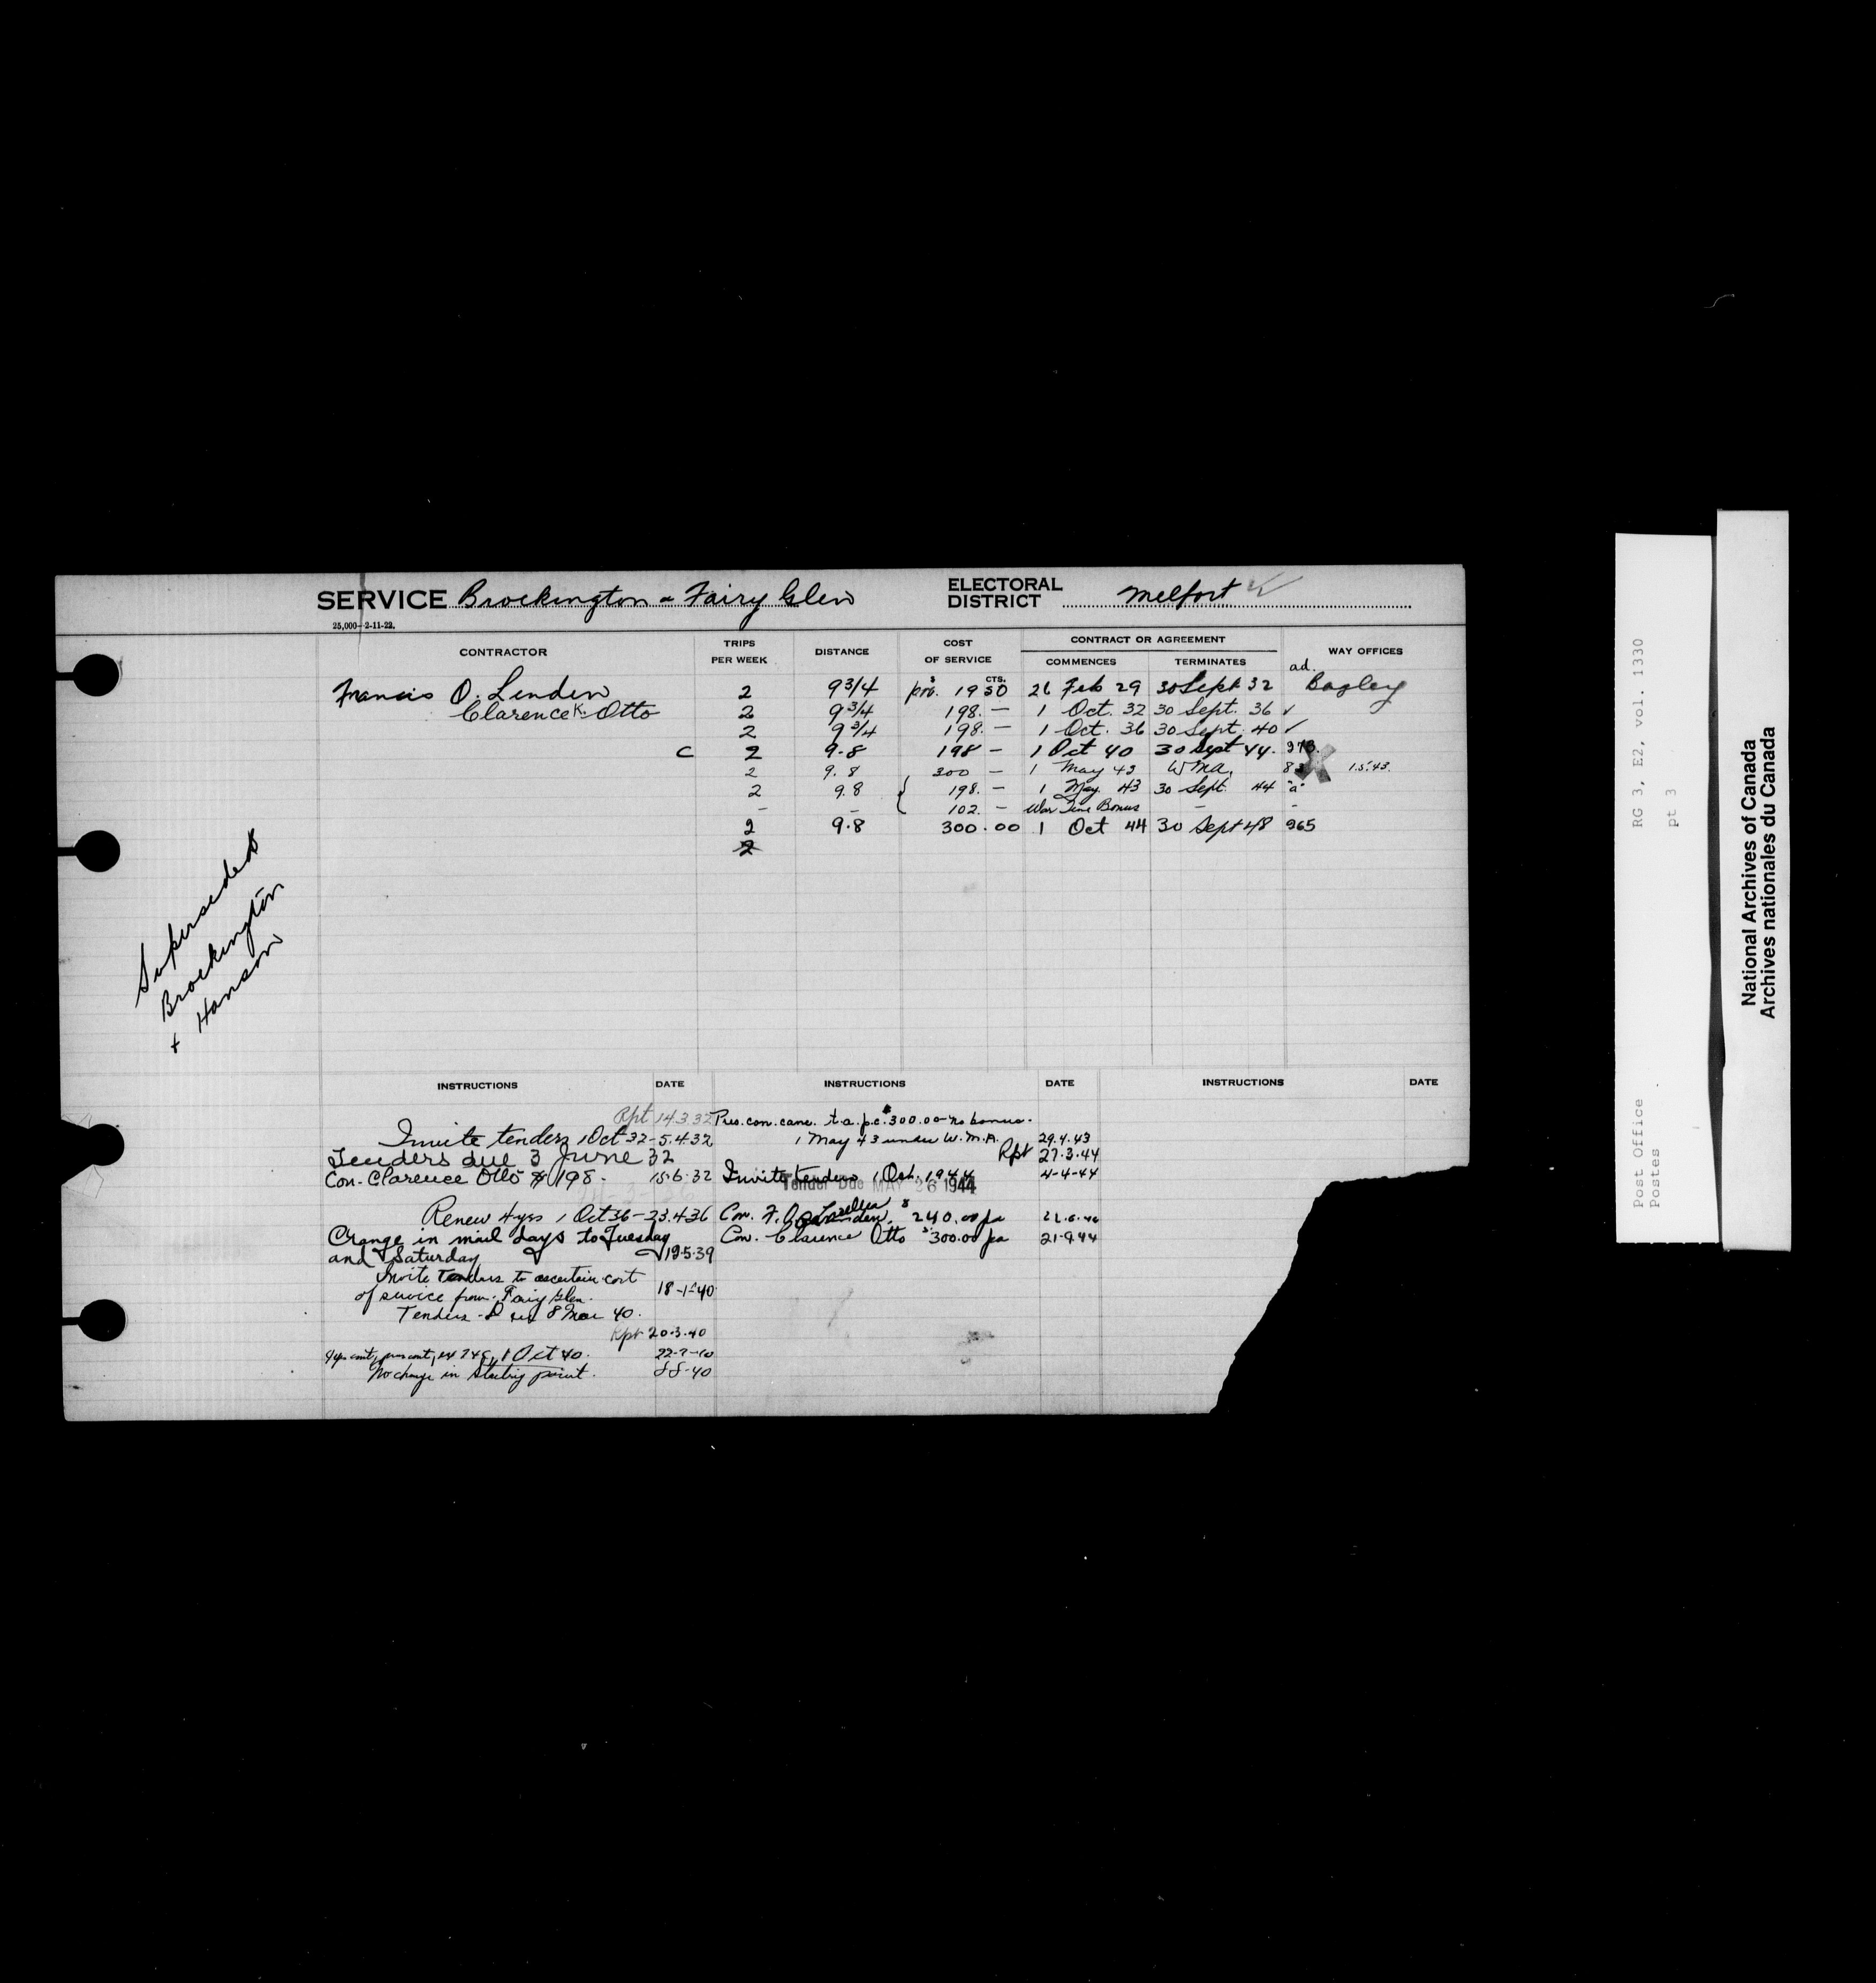 SERVICE Brockington & Fairy Glen ELECTORAL DISTRICT Melfort
25,000-2-11-22.
CONTRACTOR TRIPS PER WEEK DISTANCE COST OF SERVICE CONTRACT OR AGREEMENT COMMENCES TERMINATES WAY OFFICES
ad.
$ CTS.
Francis O. Linden 2 9 3/4 pro. 19 50 26 Feb 29 30 Sept 32 Bagley
Clarence K. Otto 2 9 3/4 198. — 1 Oct. 32 30 Sept. 36 ✓
2 9 3/4 198. — 1 Oct. 36 30 Sept. 40 ✓
C 2 9.8 198 — 1 Oct 40 30 Sept 44.
2 9.8 300 — 1 May 43 W M A. 1.5.43.
2 9.8 { 198. — 1 May. 43 30 Sept. 44 "a"
- - 102. — War Time Bonus - -
2 9.8 300.00 1 Oct 44 30 Sept 48 965
2
Superseded
Brockington
+ Hanson
INSTRUCTIONS DATE INSTRUCTIONS DATE INSTRUCTIONS DATE
Rpt 14.3.32
Invite tenders 1 Oct 32 - 5.4.32
Tenders due 3 June 32
Con. Clarence Otto $198. 15.6.32
Renew 4 yrs 1 Oct 36 - 23.4.36
Change in mail days to Tuesday
and Saturday 19.5.39
Invite tenders to ascertain cost
of service from Fairy Glen. 18-1-40
Tenders Due 8 Mar 40.
Rpt 20.3.40
1 Oct 40.
No change in starting point.
Pres. con. canc. t.a. p.c. $300.00 - no bonus.
1 May 43 under W.M.A. 29.4.43
Rpt 27.3.44
Invite tenders 1 Oct. 1944 4-4-44
Tender Due MAY 26 1944
Con. F. O. Linden. $240.00 pa
Con. Clarence Otto $300.00 pa 21.9.44
RG 3, E2, vol. 1330
pt 3
Post Office
Postes
National Archives of Canada
Archives nationales du Canada